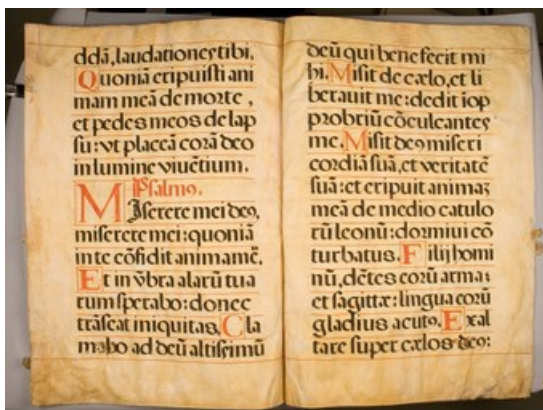 ddā, laudationes tibi.
Quoniā eripuisti ani
mam meā de morte,
et pedes meos de lap
su: vt placeā corā deo
in lumine viuētium.
Psalm9.
Miserere mei de9,
miserere mei: quoniā
in te cōfidit anima mē.
Et in vbra alarū tua
rum sperabo: donec
trāseat iniquitas. Cla
mabo ad deū altissimū
deū qui benefecit mi
hi. Misit de cælo, et li
berauit me: dedit iop
probriū cōculcantes
me. Misit de9 miseri
cordiā suā, et veritatē
suā: et eripuit animaz
meā de medio catulo
rū leonū: dormiui cō
turbatus. Filij homi
nū, dētes eorū arma:
et sagittæ: lingua eorū
gladius acut9. Exal
tare super cælos de9: